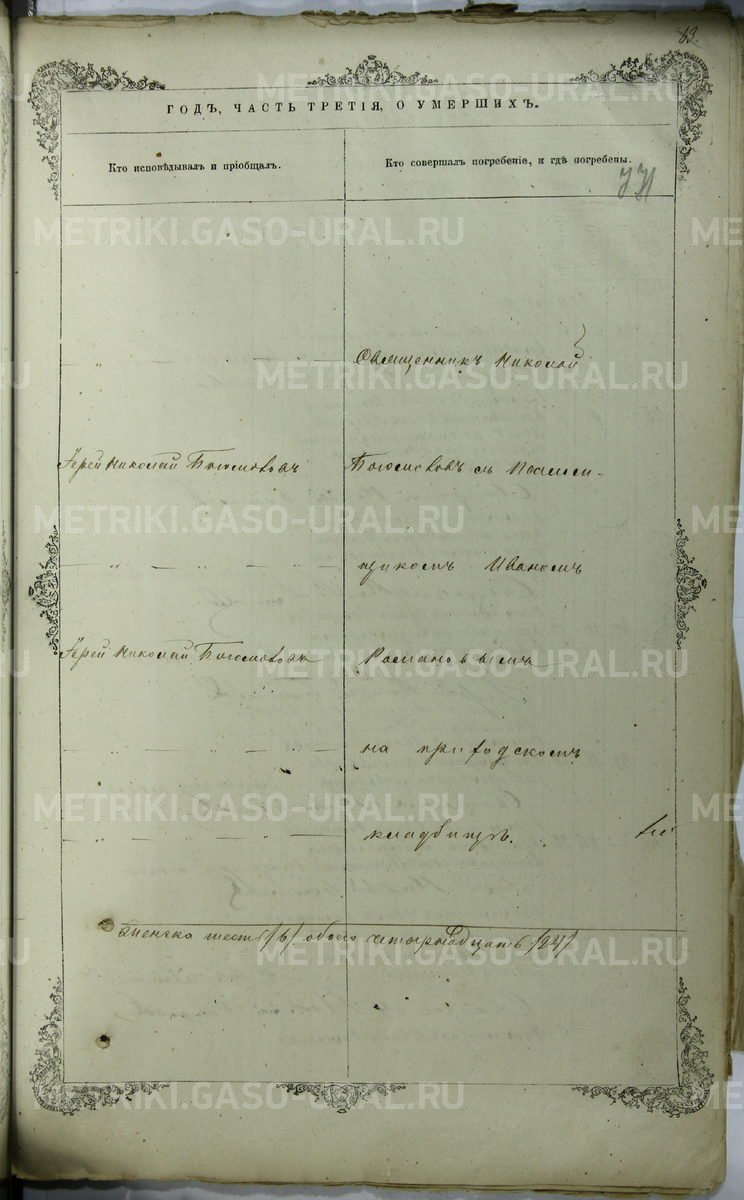 63.
ГОДЪ, ЧАСТЬ ТРЕТІЯ, О УМЕРШИХЪ.
Кто исповѣдывалъ и пріобщалъ.
Кто совершалъ погребеніе, и гдѣ погребены.
Священникъ Николай
Іерей Николай Богословъ
Богословъ съ Псаломщикомъ Иваномъ
Іерей Николай Богословъ
Романовымъ
на приходскомъ
кладбищѣ.
женска шесть /6/ обоего
METRIKI.GASO-URAL.RU